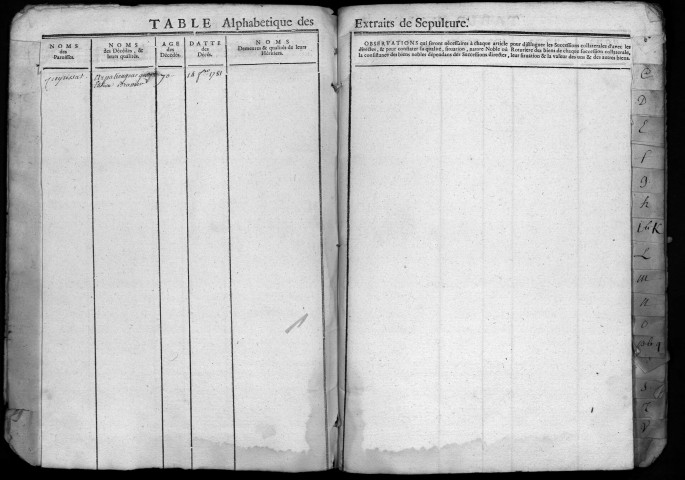 TABLE Alphabetique des Extraits de Sepulture.
NOMS
des
Paroisses.
NOMS
des Décédés, &
leurs qualités.
AGE
des
Décédés.
DATTE
du
Décès.
NOMS
Demeures & qualités de leurs
Héritiers.
OBSERVATIONS qui seront nécessaires à chaque article pour distinguer les Successions collatérales d'avec les
directes, & pour constater la qualité, situation, nature Noble ou Roturiere des biens de chaque succession collatérale,
la consistance des biens nobles dépendans des Successions directes, leur situation & la valeur des uns & des autres biens.
70
18 1781
C
D
E
f
g
h
K
L
m
n
o
q
s
t
V